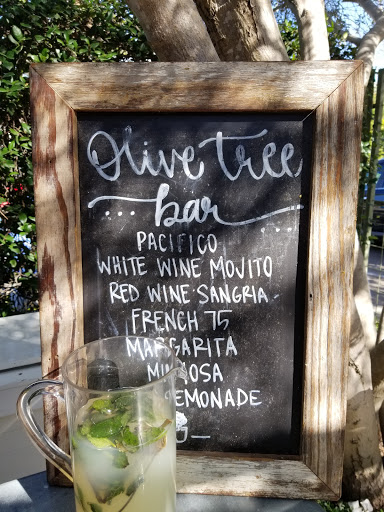 Olive tree
bar
PACIFICO
WHITE WINE MOJITO
RED WINE SANGRIA
FRENCH 75
MARGARITA
MIMOSA
LEMONADE